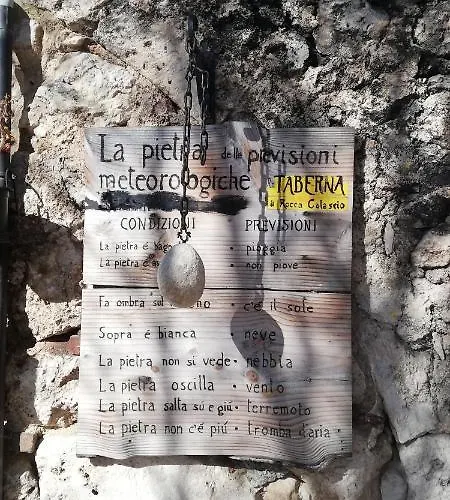 La pietra delle previsioni
meteorologiche
TABERNA
di Rocca Calascio
CONDIZIONI PREVISIONI
La pietra é • pioggia
La pietra é • non piove
Fa ombra sul • c'é il sole
Sopra é bianca • neve
La pietra non si vede • nebbia
La pietra oscilla • vento
La pietra salta sú e giú • terremoto
La pietra non c'é piú • tromba d'aria